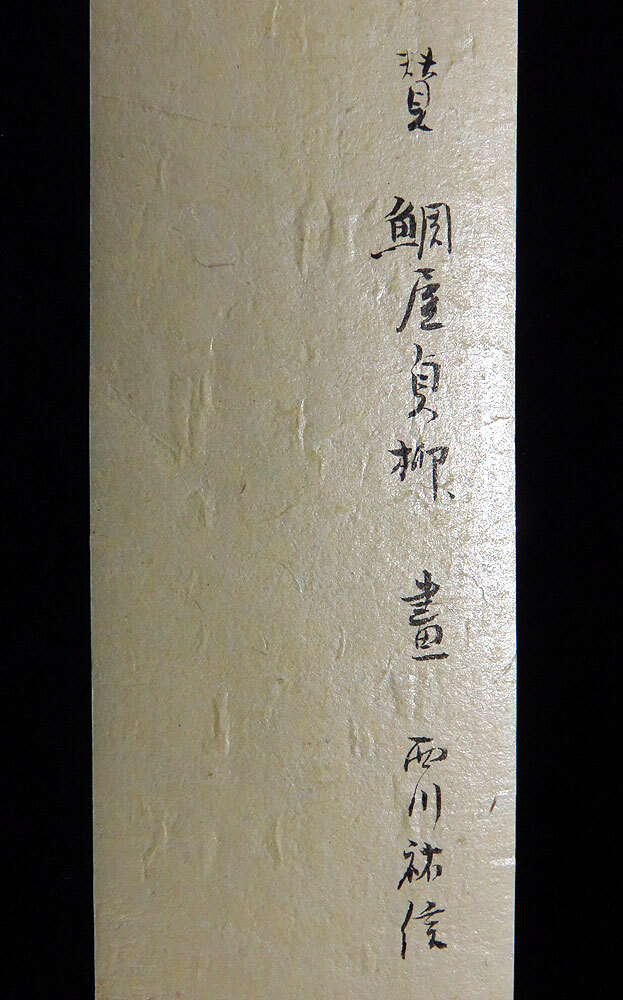 賛 鯛屋貞柳 畫 西川祐信